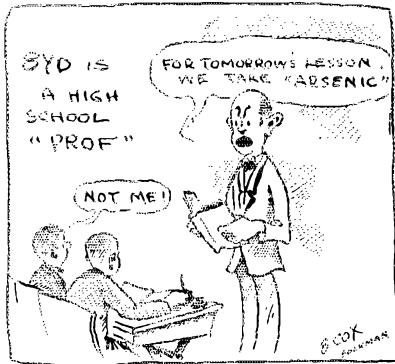 SYD IS
A HIGH
SCHOOL
"PROF"
FOR TOMORROW'S LESSON,
WE TAKE "ARSENIC"
NOT ME!
B. COX